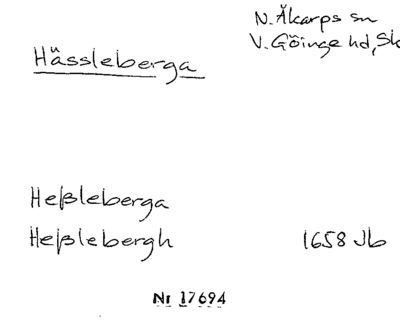 N. Åkarps sn
V. Göinge hd, Sk
Hässleberga
Heßleberga
Heßlebergh 1658 Jb
Nr 17694